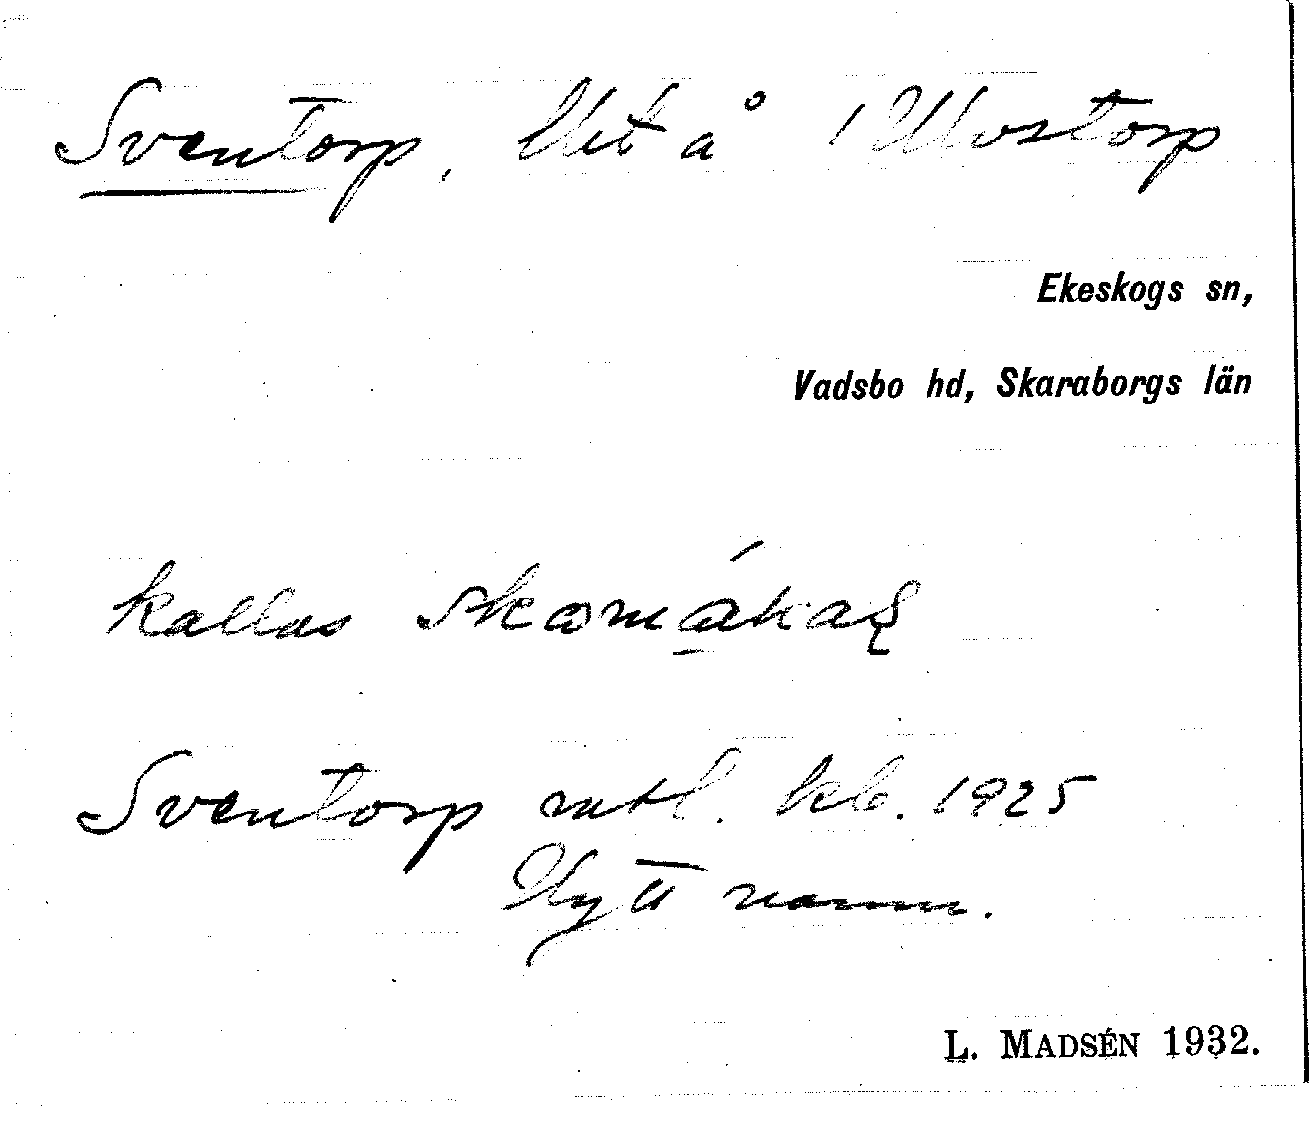 Sventorp, lht å 1 Ulvstorp
Ekeskogs sn,
Vadsbo hd, Skaraborgs län
kallas
Sventorp mtl. kb. 1925
Nytt namn.
L. MADSÉN 1932.